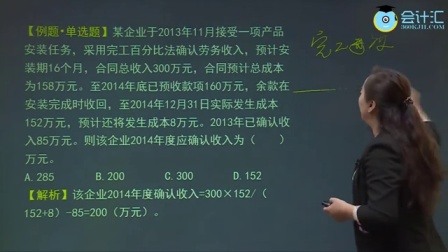 会计汇
360KJH.COM
【例题·单选题】某企业于2013年11月接受一项产品
安装任务，采用完工百分比法确认劳务收入，预计安
装期16个月，合同总收入300万元，合同预计总成本
为158万元。至2014年底已预收款项160万元，余款在
安装完成时收回，至2014年12月31日实际发生成本
152万元，预计还将发生成本8万元。2013年已确认收
入85万元。则该企业2014年度应确认收入为（ ）
万元。
A. 285 B. 200 C. 300 D. 152
【解析】该企业2014年度确认收入=300×152/（
152+8）-85=200（万元）。
完工